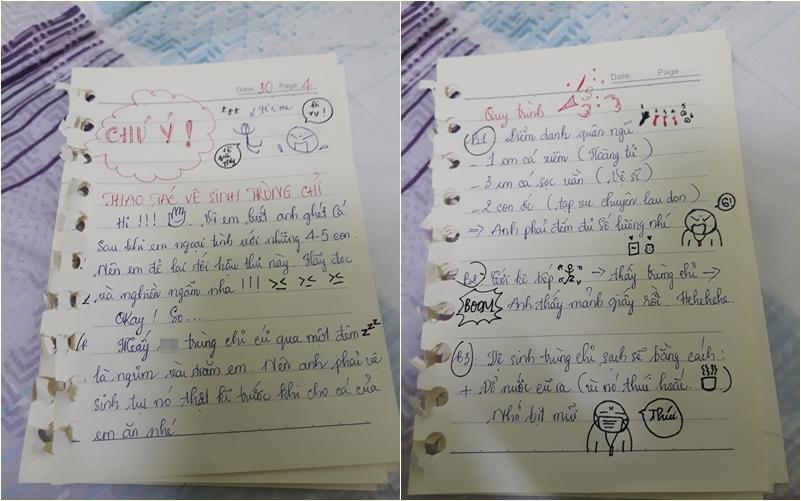 Date 30 Page 4
CHÚ Ý!
It's me
THAO TÁC VỆ SINH TRÙNG CHỈ
Hi!!! Vì em biết anh ghét cá
sau khi em ngoại tình với những 4-5 con.
Nên em để lại tối hậu thư này. Hãy đọc
và nghiền ngẫm nha!!! >< >< ><
Okay! So....
Mấy trùng chỉ cứ qua một đêm zzz
là ngủm xàu đám em. Nên anh phải vệ
sinh tụi nó thật kĩ trước khi cho cá của
em ăn nhé
Date Page
Quy trình
B1 Điểm danh quân ngũ
- 1 em cá xiêm (Hoàng tử)
- 3 em cá sọc vằn (Vệ sĩ)
- 2 con ốc (tạp vụ chuyên lau dọn)
=> Anh phải đếm đủ số lượng nhé
6!
B2 Tới kệ bếp → thấy trùng chỉ →
BOOM! Anh thấy mảnh giấy rồi. Hehehehe.
B3. Vệ sinh trùng chỉ sạch sẽ bằng cách:
+ Đổ nước cũ ra (vì nó thúi hoắc)
Nhớ bịt mũi
Thúi